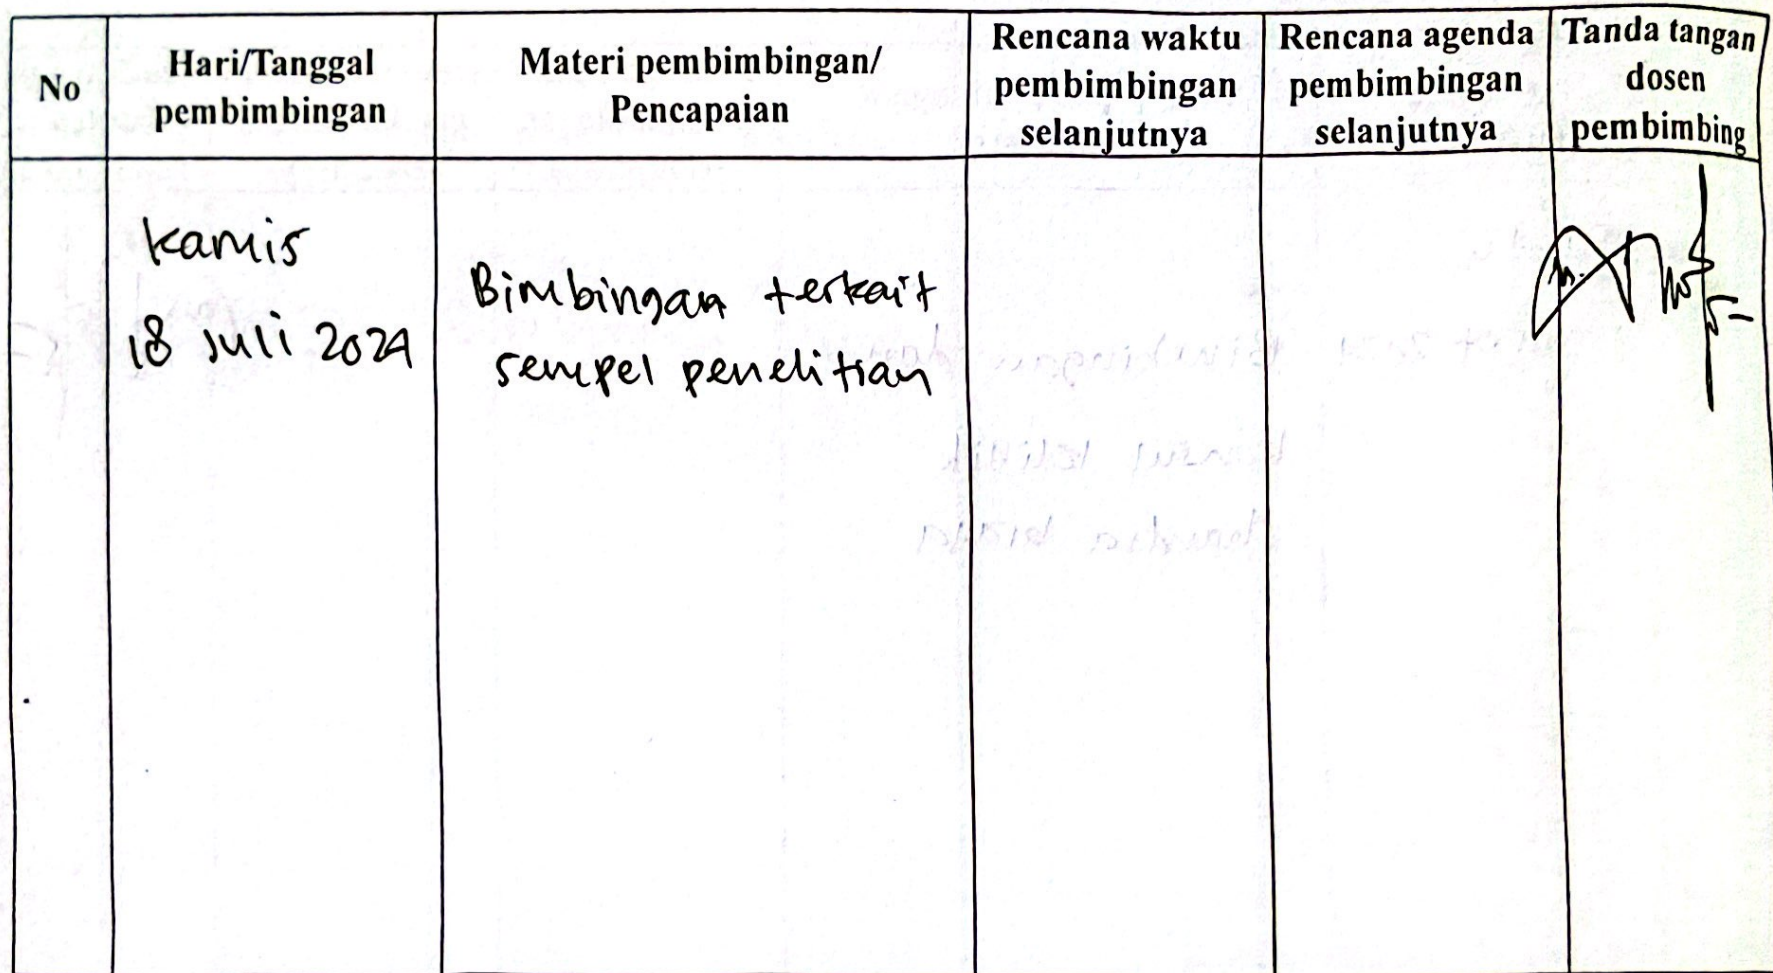 No
Hari/Tanggal
pembimbingan
Materi pembimbingan/
Pencapaian
Rencana waktu
pembimbingan
selanjutnya
Rencana agenda
pembimbingan
selanjutnya
Tanda tangan
dosen
pembimbing
Kamis
18 Juli 2024
Bimbingan terkait
sempel penelitian